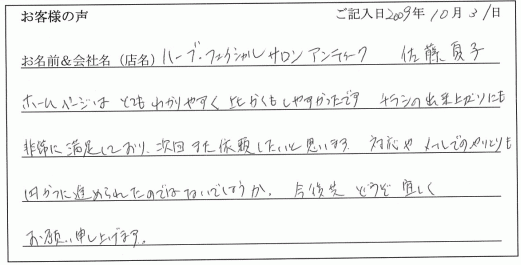 お客様の声 ご記入日2009年10月31日
お名前&会社名（店名）ハーブ・フェイシャルサロン アンティーク 佐藤夏子
ホームページは とても わかりやすく 比かくもしやすかったです チラシの出来上がりにも
非常に満足しており、次回また依頼したいと思います 対応や メールでのやりとりも
円かつに進められたのではないでしょうか。 今後共 どうぞ宜しく
お願い申し上げます。